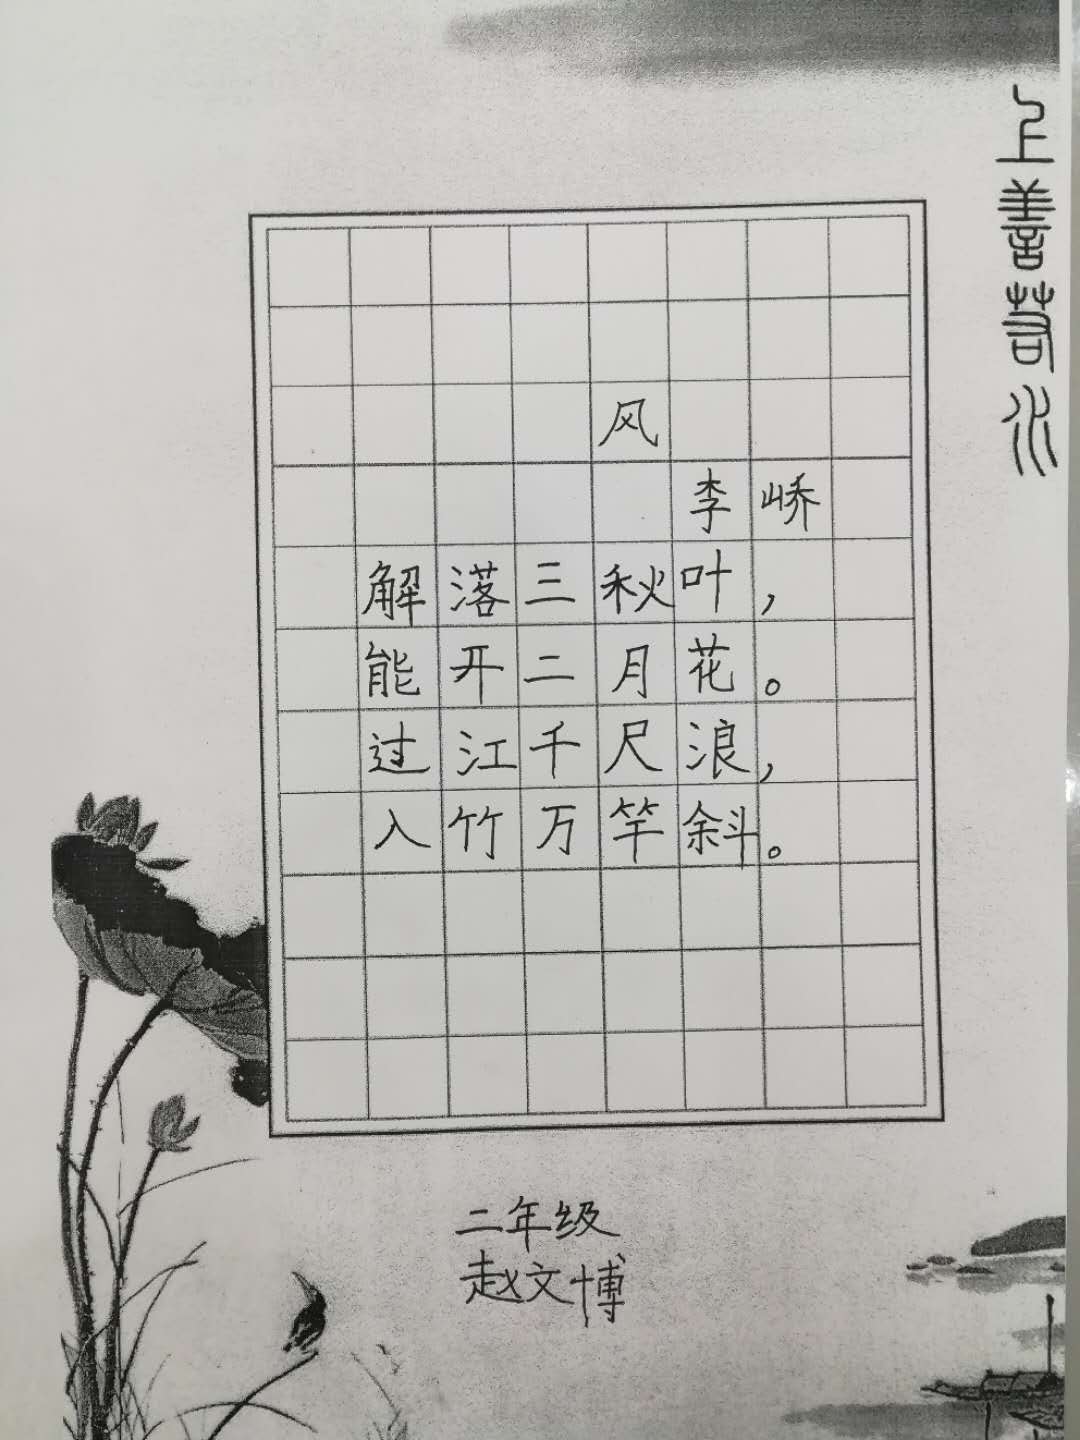 上善若水
风
李峤
解落三秋叶，
能开二月花。
过江千尺浪，
入竹万竿斜。
二年级
赵文博